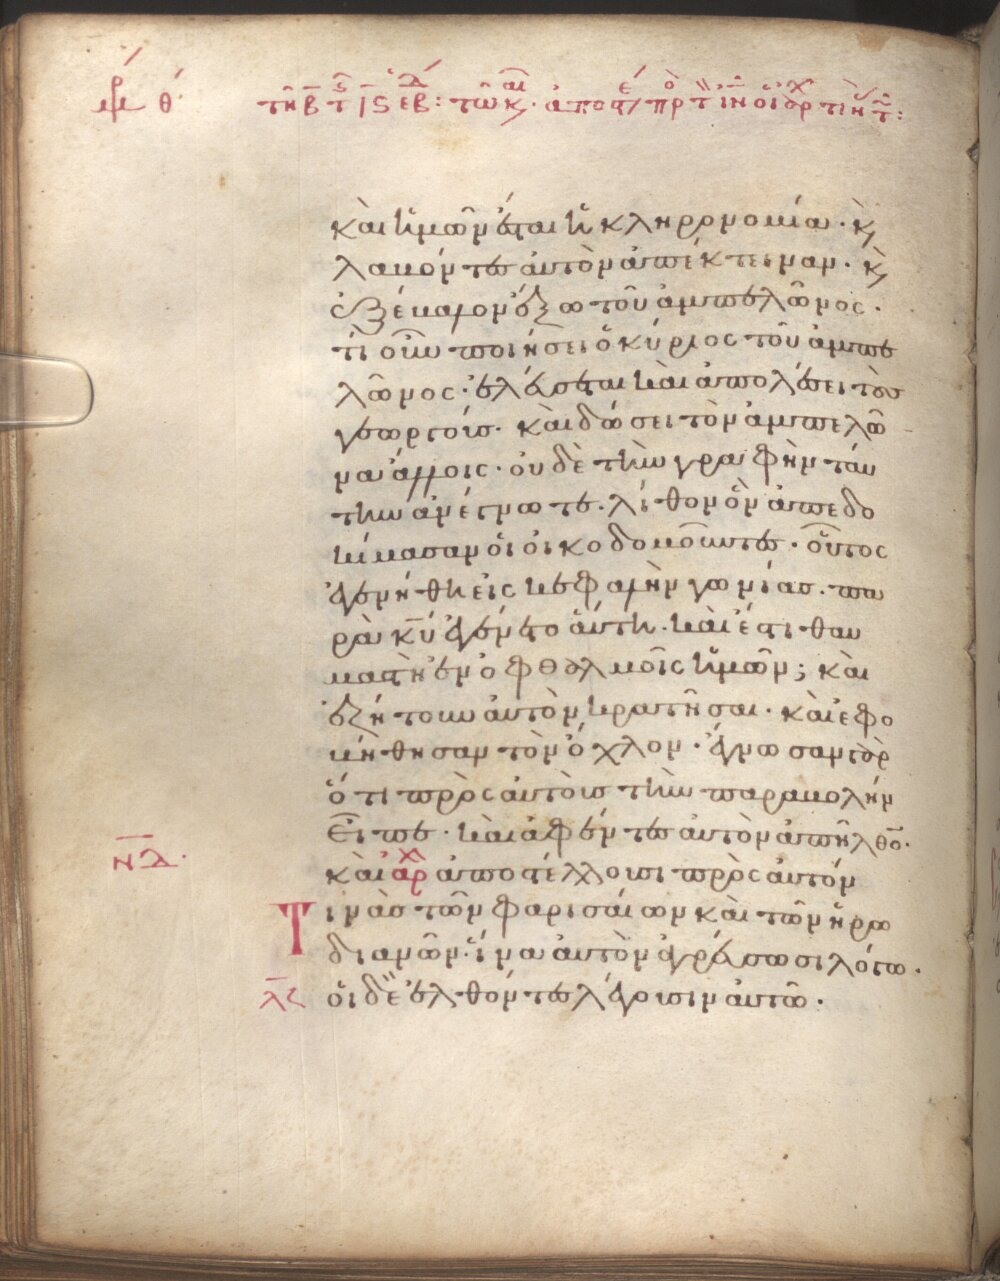 καὶ ἡμῶν ἔσται ἡ κληρονομία· κ(αὶ)
λαβόντες αὐτὸν ἀπέκτειναν· κ(αὶ)
ἐξέβαλον ἔξω τοῦ ἀμπελῶνος·
τί οὖν ποιήσει ὁ κύριος τοῦ ἀμπε
λῶνος· ἐλεύσεται καὶ ἀπολέσει τοὺς
γεωργοὺς· καὶ δώσει τὸν ἀμπελῶ
να ἄλλοις· οὐδὲ τὴν γραφὴν ταύ
την ἀνέγνωτε· λίθον ὃν ἀπεδο
κίμασαν οἱ οἰκοδομοῦντες· οὗτος
ἐγενήθη εἰς κεφαλὴν γωνίας· πα
ρὰ κ̅υ̅ ἐγένετο αὕτη· καὶ ἔστι θαυ
μαστὴ ἐν ὀφθαλμοῖς ἡμῶν; καὶ
ἐζήτουν αὐτὸν κρατῆσαι· καὶ ἐφο
βήθησαν τὸν ὄχλον· ἔγνωσαν γὰρ
ὅτι πρὸς αὐτοὺς τὴν παραβολὴν
εἶπε· καὶ ἀφέντες αὐτὸν ἀπῆλθο(ν)·
ν̅δ̅·
καὶ ἀρχ ἀποστέλλουσι πρὸς αὐτόν
Τινὰς τῶν φαρισαίων καὶ τῶν ἡρω
διανῶν· ἵνα αὐτὸν ἀγρεύσωσι λόγω·
οἱ δὲ ἐλθόντες λέγουσιν αὐτῶ·